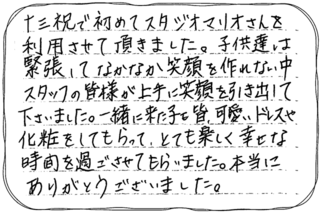 十三祝で初めてスタジオマリオさんを
利用させて頂きました。子供達は
緊張してなかなか笑顔を作れない中
スタッフの皆様が上手に笑顔を引き出して
下さいました。一緒に来た子も皆、可愛いドレスや
化粧をしてもらって、とても楽しく幸せな
時間を過ごさせてもらいました。本当に
ありがとうございました。